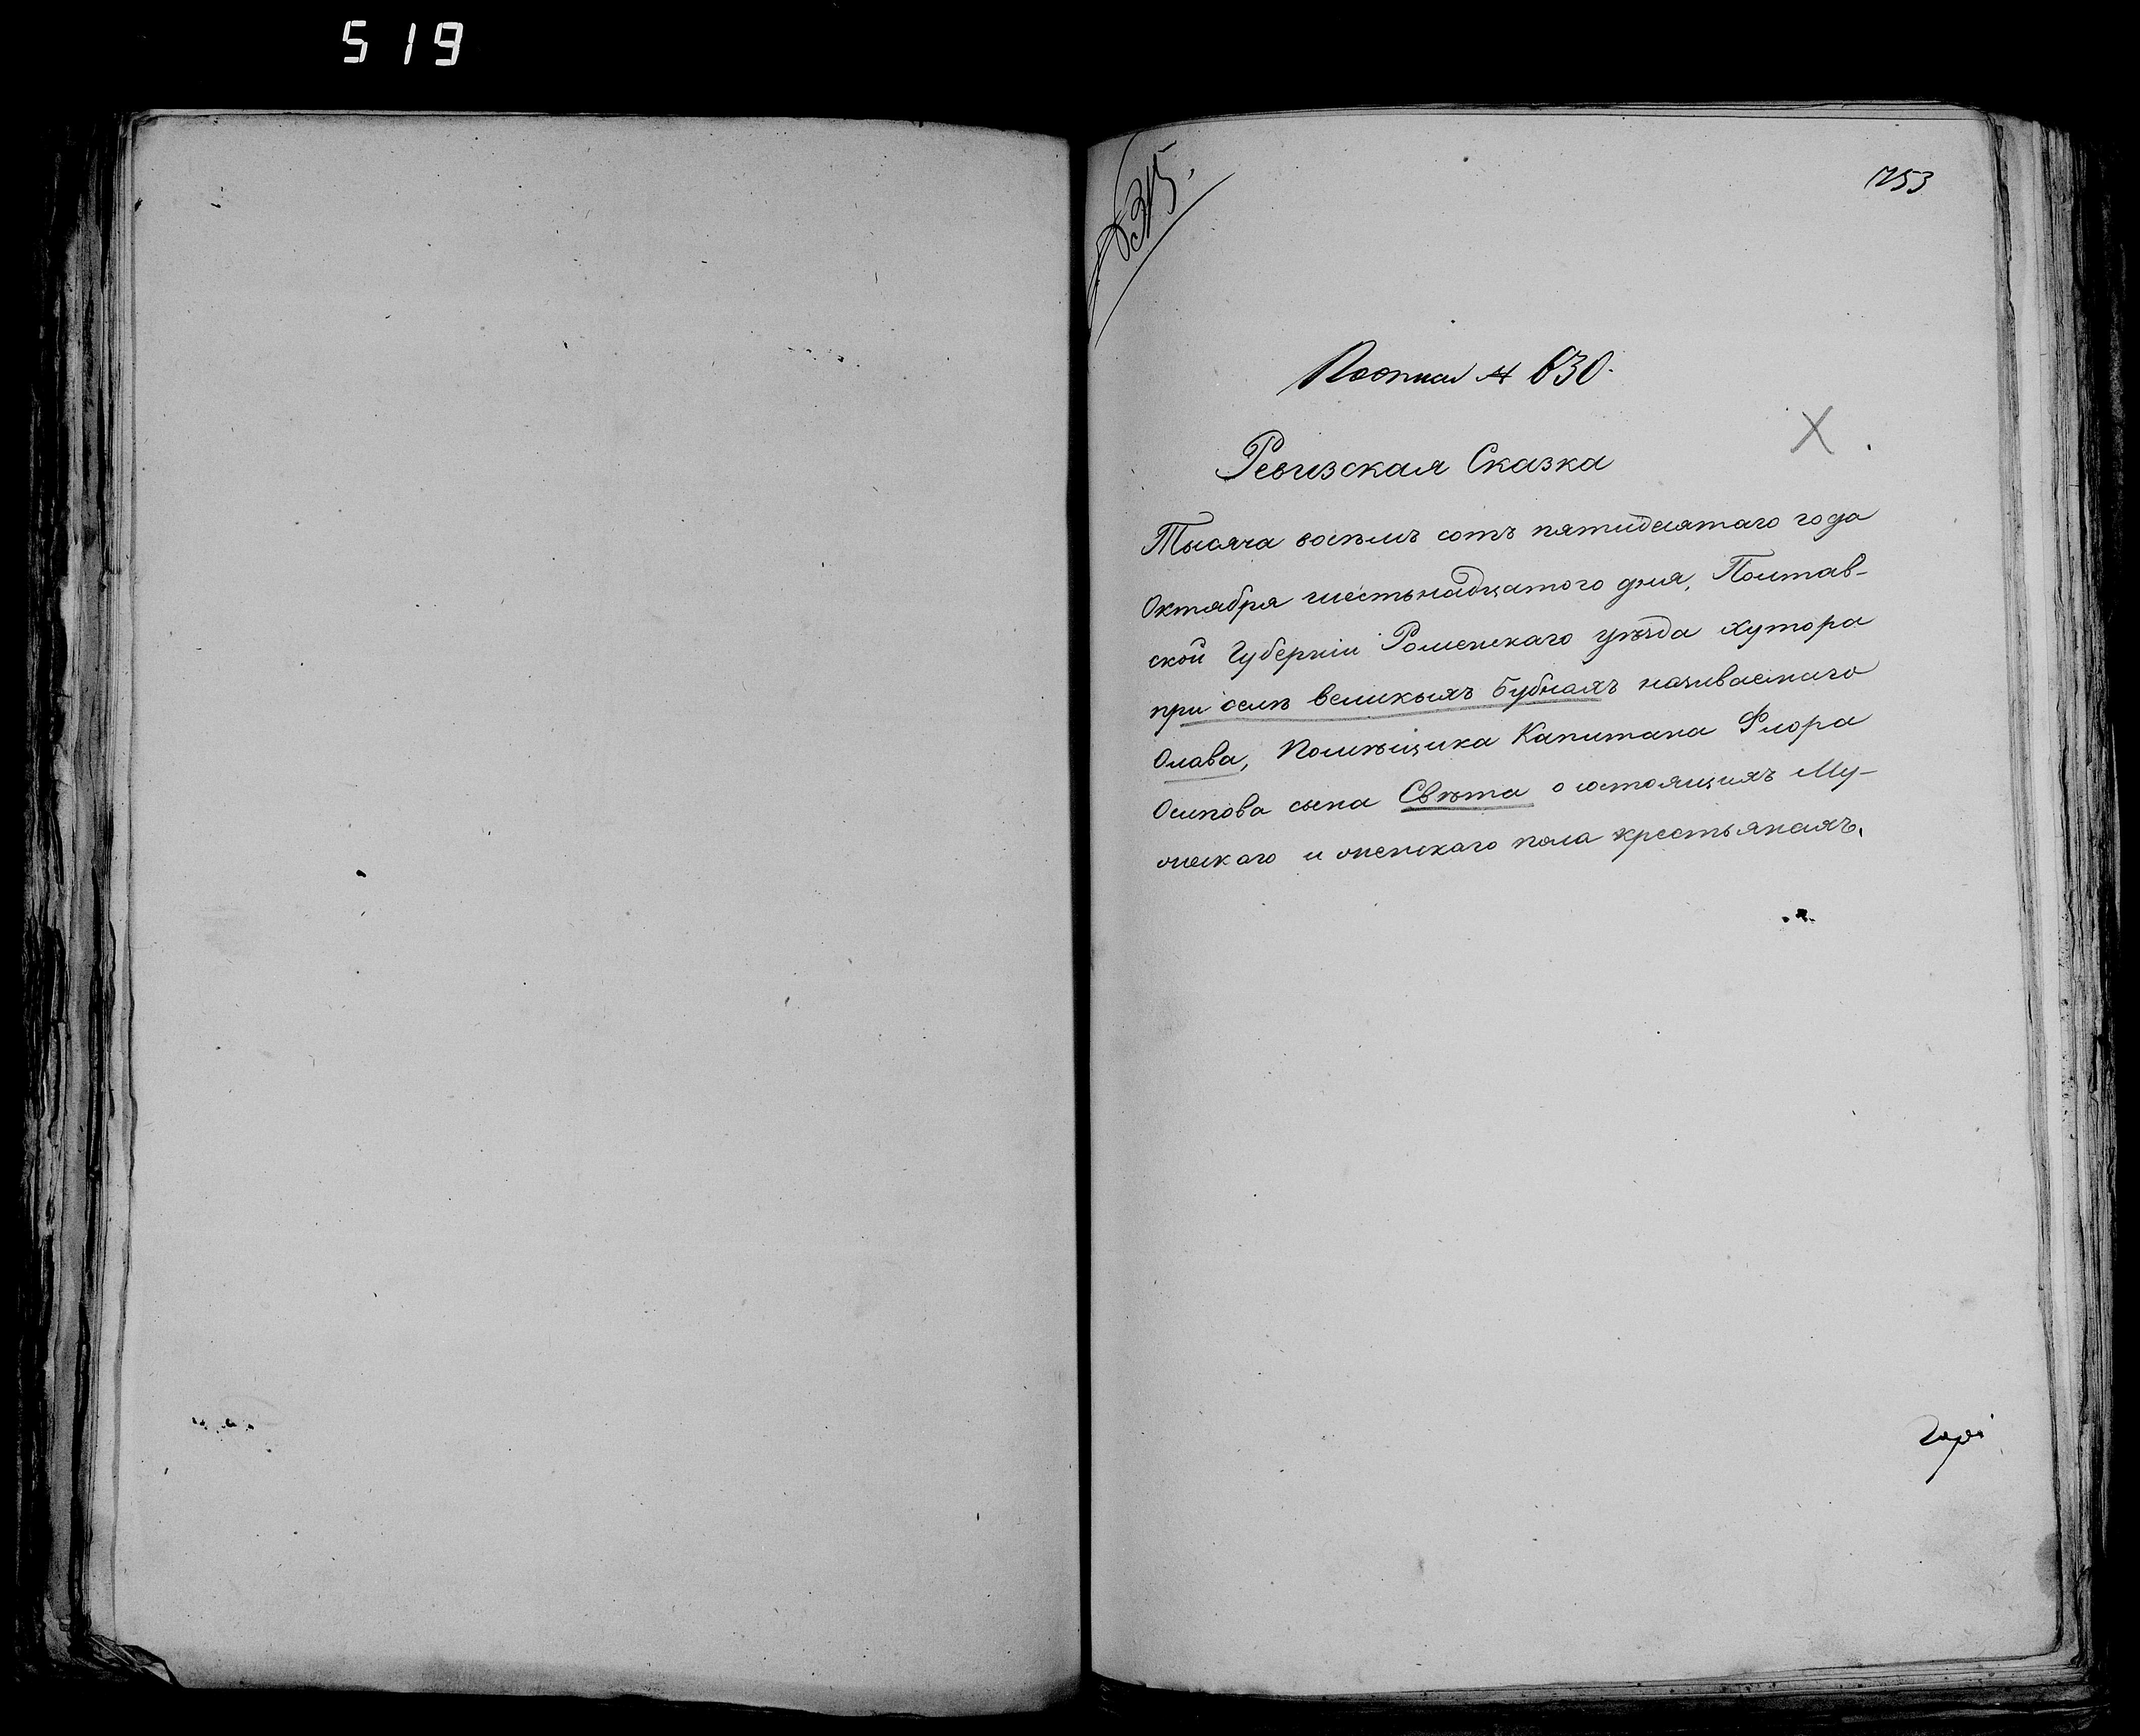 519
1253
№ 630.
Ревизская Сказка
Тысяча восемъ сотъ пятидесятаго года
Октября шестьнадцатого дня, Полтав-
ской Губерніи Роменскаго уѣзда хутора
при селѣ великыхъ Бубнахъ називаемаго
Олава, Помѣщика Капитана Флора
Осипова сына Свѣта о состоящихъ Му-
жескаго и женскаго пола крестьянахъ.